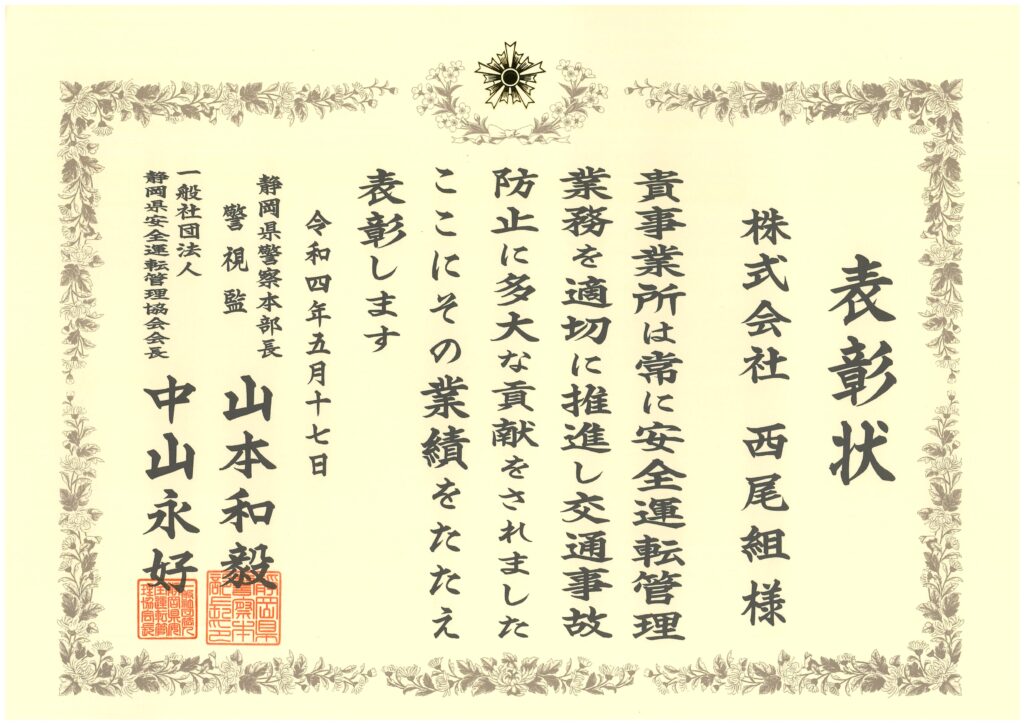 表彰状
株式会社 西尾組 様
貴事業所は常に安全運転管理
業務を適切に推進し交通事故
防止に多大な貢献をされました
ここにその業績をたたえ
表彰します
令和四年五月十七日
静岡県警察本部長
警視監 山本和毅
一般社団法人
静岡県安全運転管理協会会長 中山永好